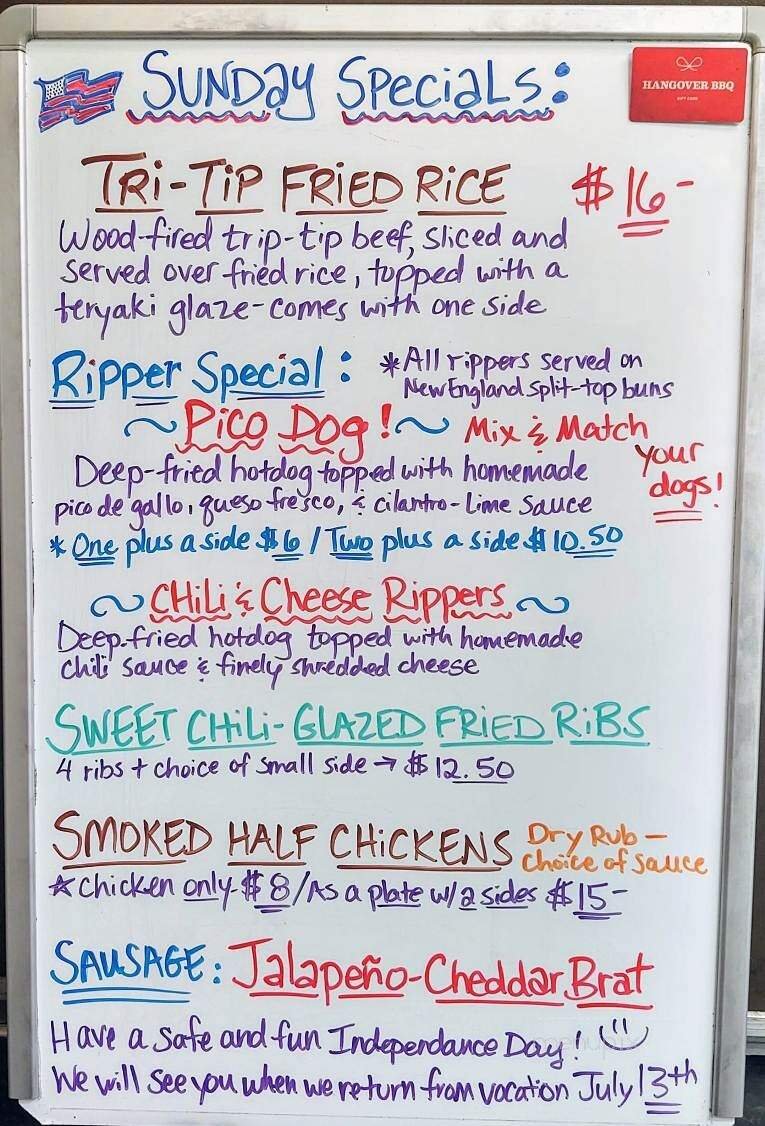 SUNDAY SPECIALS:
HANGOVER BBQ
GIFT CARD
TRI-TIP FRIED RICE $16-
Wood-fired trip-tip beef, sliced and
served over fried rice, topped with a
teryaki glaze-comes with one side
Ripper Special:
*All rippers served on
New England split-top buns
~Pico Dog!~
Mix & Match
your
dogs!
Deep-fried hotdog topped with homemade
pico de gallo, queso fresco, & cilantro-Lime sauce
* One plus a side $6 / Two plus a side $10.50
~CHiLi & Cheese Rippers~
Deep-fried hotdog topped with homemade
chili sauce & finely shredded cheese
SWEET CHiLi-GLAZED FRiED RiBS
4 ribs + choice of small side → $12.50
SMOKED HALF CHiCKENS
Dry Rub-
choice of sauce
*Chicken only-$8/As a plate w/2 sides $15-
SAUSAGE: Jalapeño-Cheddar Brat
Have a safe and fun Independance Day!
We will see you when we return from vacation July 13th